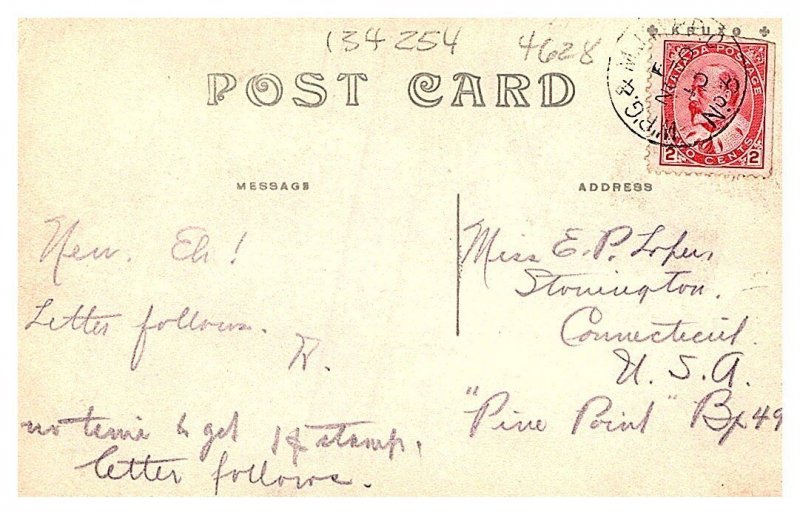 134 254 4628
KRUXO
POST CARD
CANADA POSTAGE
2 CENTS 2
MESSAGE
ADDRESS
New. Eh!
Letter follows.
R.
no time to get 1¢ stamp.
letter follows.
Miss E. P. Loper,
Stonington.
Connecticut.
U. S. A.
"Pine Point" Bx 49